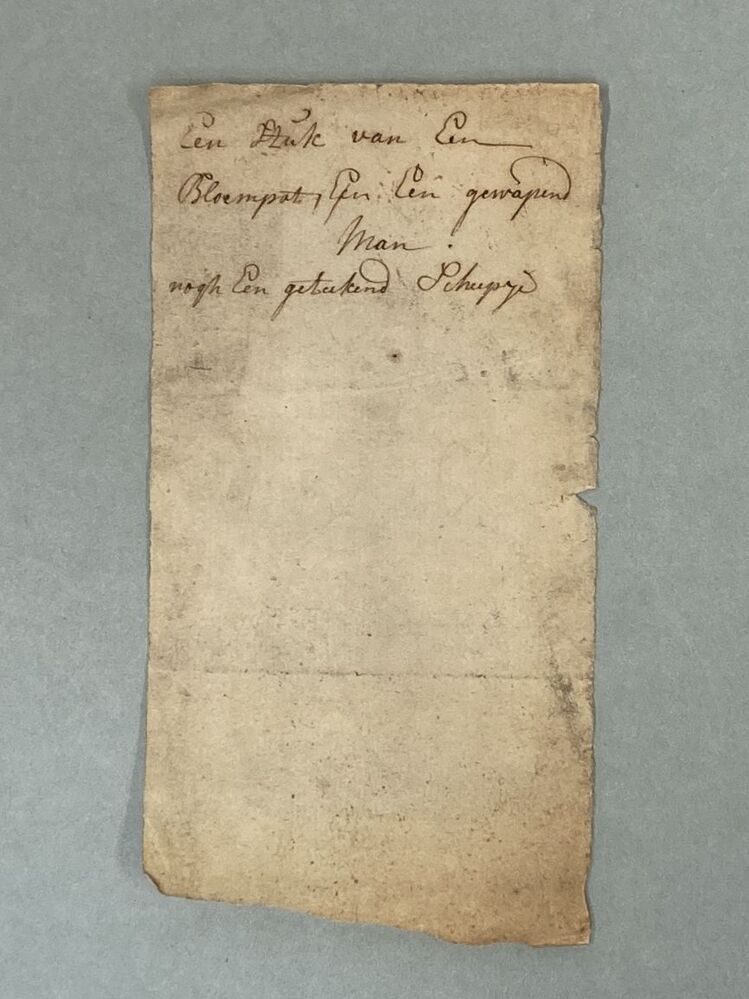 Een Stuk van Een
Bloempot, En Een gewapend
Man.
nogh Een geteekend Scheepje